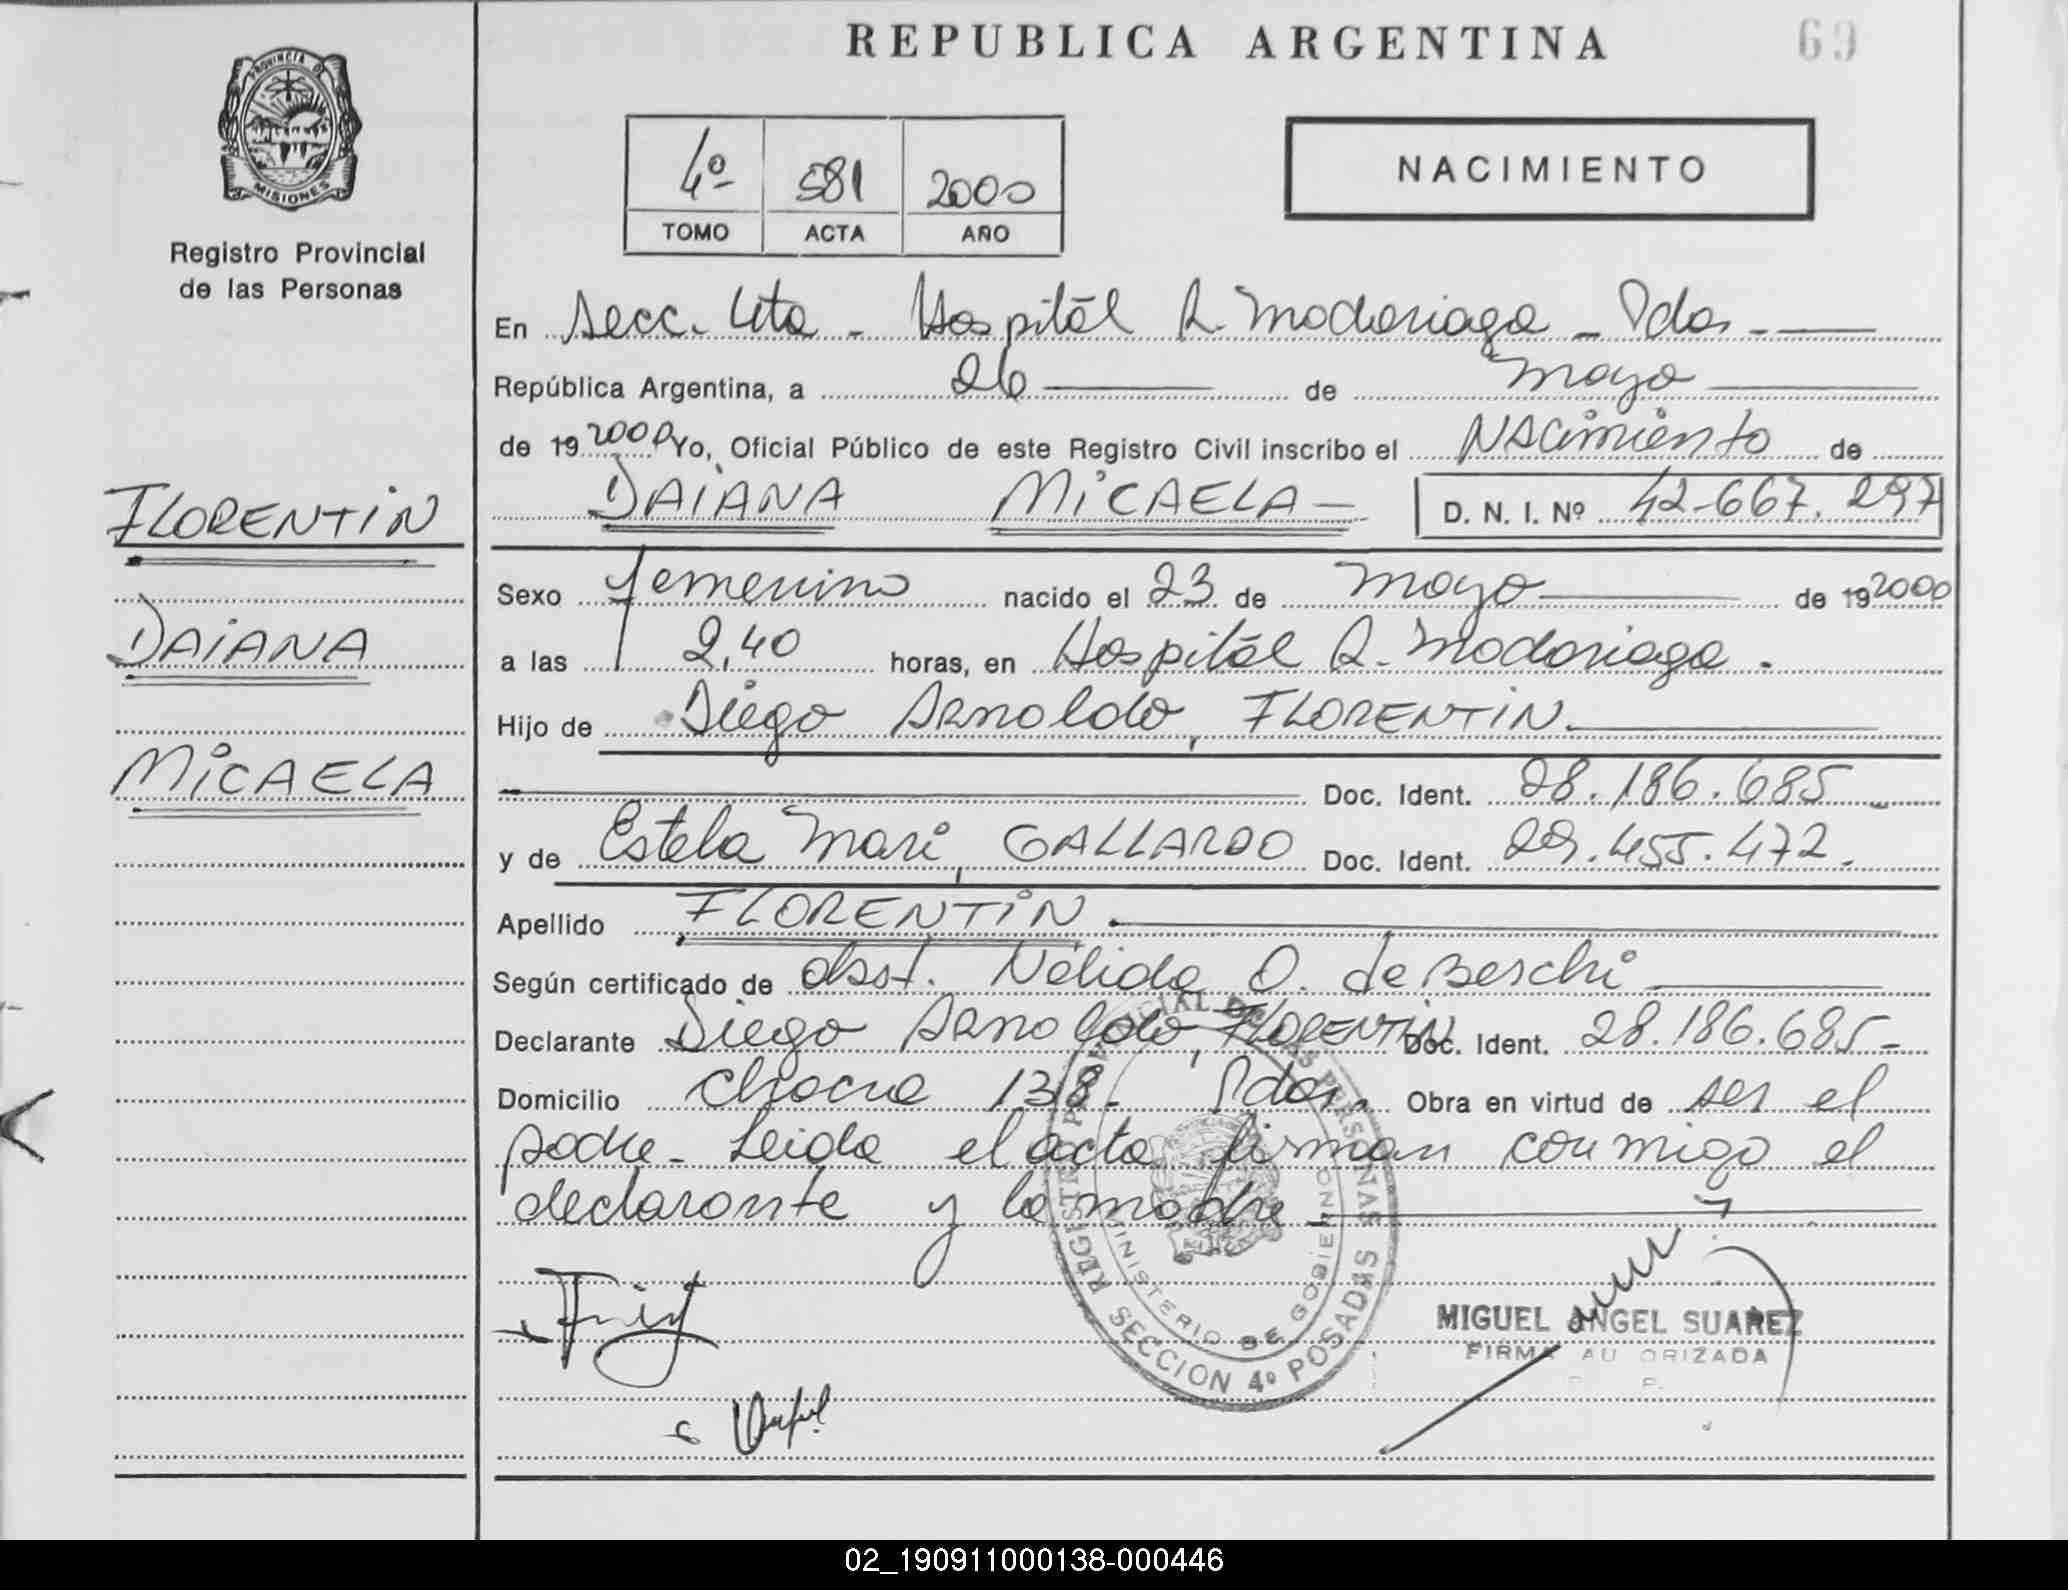 REPUBLICA ARGENTINA
69
PROVINCIA DE
MISIONES
Registro Provincial
de las Personas
4º 581 2000
TOMO ACTA AÑO
NACIMIENTO
En Secc. 4ta - Hospital R. Madariaga - Pdas -
República Argentina, a 26 de mayo
de 19 2000 Yo, Oficial Público de este Registro Civil inscribo el Nacimiento de
DAIANA MICAELA - D. N. I. Nº 42-667.297
FLORENTIN
DAIANA
MICAELA
Sexo femenino nacido el 23 de mayo de 19 2000
a las 2,40 horas, en Hospital R. Madariaga.
Hijo de Diego Arnoldo, FLORENTIN.
Doc. Ident. 28.186.685
y de Estela Mari, GALLARDO Doc. Ident. 29.455.472.
Apellido FLORENTIN.
Según certificado de obst. Nélida O. de Beschi
Declarante Diego Arnoldo, FLORENTIN Doc. Ident. 28.186.685-
Domicilio Chacra 138. Pdas. Obra en virtud de ser el
padre - Leida el acta firman conmigo el
declarante y la madre
REGISTRO PROVINCIAL DE LAS PERSONAS
MINISTERIO DE GOBIERNO
SECCION 4º POSADAS
MIGUEL ANGEL SUAREZ
FIRMA AU ORIZADA
02_190911000138-000446